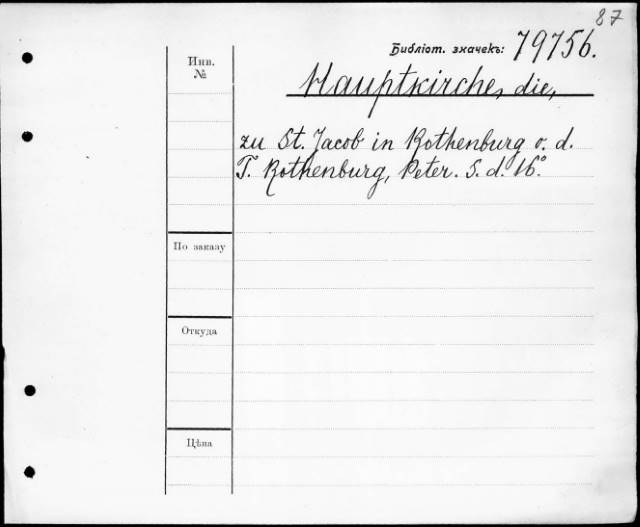 87
Библіот. значекъ: 79756.
Инв.
№
Hauptkirche, die,
zu St. Jacob in Rothenburg o. d.
T. Rothenburg, Peter. S. d. 16°.
По заказу
Откуда
Цѣна